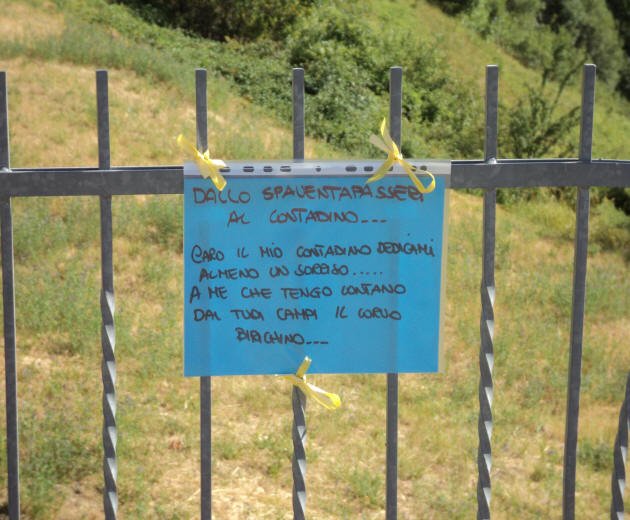 DALLO SPAVENTAPASSERI
AL CONTADINO...
CARO IL MIO CONTADINO DEDICAMI
ALMENO UN SORRISO.....
A ME CHE TENGO LONTANO
DAI TUOI CAMPI IL CORVO
BIRICHINO...